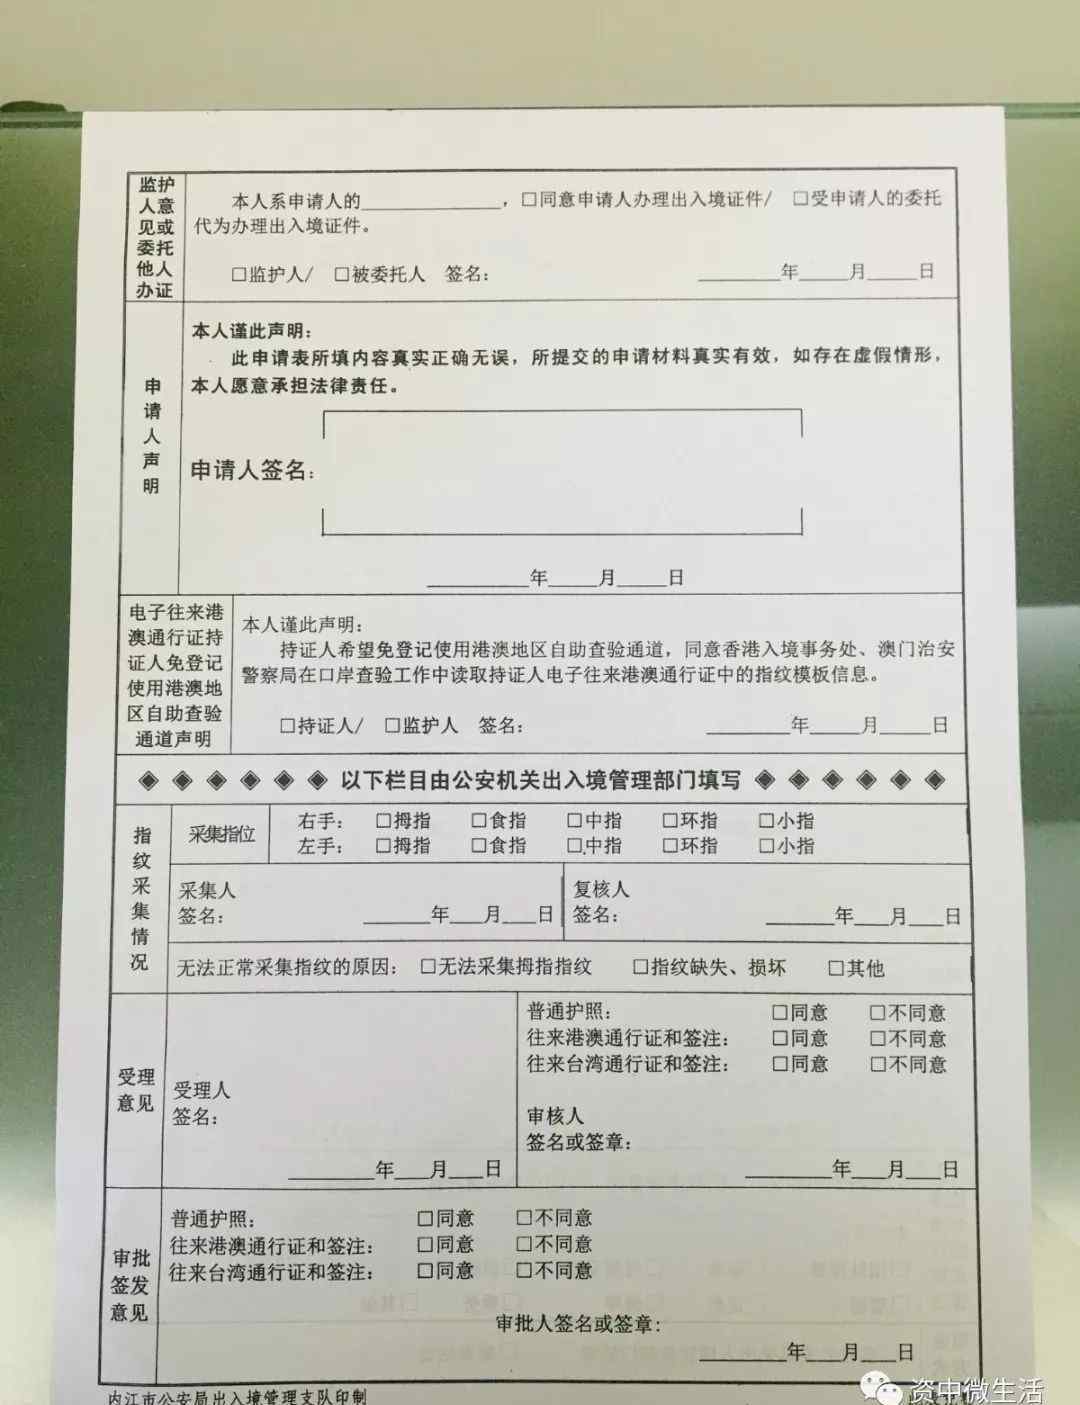 监护人意见或委托他人办证
本人系申请人的______________，□同意申请人办理出入境证件/ □受申请人的委托
代为办理出入境证件。
□监护人/ □被委托人 签名： ________年_____月_____日
申请人声明
本人谨此声明：
此申请表所填内容真实正确无误，所提交的申请材料真实有效，如存在虚假情形，
本人愿意承担法律责任。
申请人签名：
__________年_____月_____日
电子往来港澳通行证持证人免登记使用港澳地区自助查验通道声明
本人谨此声明：
持证人希望免登记使用港澳地区自助查验通道，同意香港入境事务处、澳门治安
警察局在口岸查验工作中读取持证人电子往来港澳通行证中的指纹模板信息。
□持证人/ □监护人 签名： ________年_____月_____日
◈ ◈ ◈ ◈ ◈ ◈ 以下栏目由公安机关出入境管理部门填写 ◈ ◈ ◈ ◈ ◈ ◈
指纹采集情况
采集指位
右手： □拇指 □食指 □中指 □环指 □小指
左手： □拇指 □食指 □中指 □环指 □小指
采集人
签名： _______年___月___日
复核人
签名： _______年___月___日
无法正常采集指纹的原因： □无法采集拇指指纹 □指纹缺失、损坏 □其他
受理意见
受理人
签名：
________年___月___日
普通护照： □同意 □不同意
往来港澳通行证和签注： □同意 □不同意
往来台湾通行证和签注： □同意 □不同意
审核人
签名或签章：
________年___月___日
审批签发意见
普通护照： □同意 □不同意
往来港澳通行证和签注： □同意 □不同意
往来台湾通行证和签注： □同意 □不同意
审批人签名或签章：
________年___月___日
内江市公安局出入境管理支队印制
资中微生活